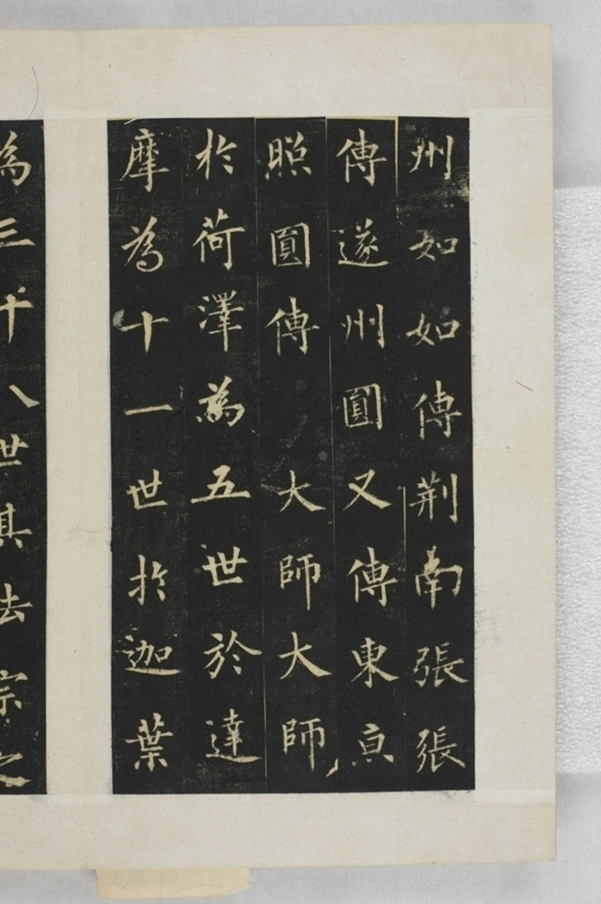 州如如傳荆南張張
傳遂州圓又傳東京
照圓傳大師大師
於荷澤為五世於達
摩為十一世於迦葉
為三十八世其法宗之